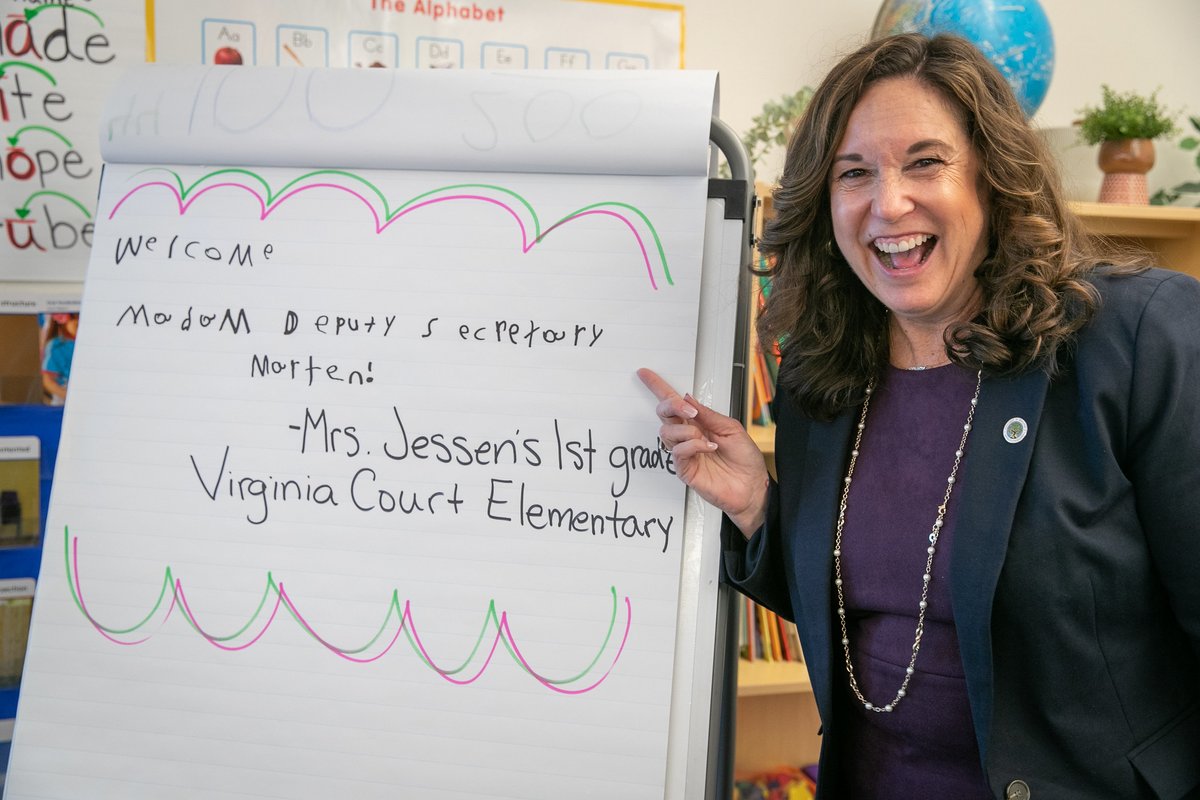 The Alphabet
Aa Bb Cc Dd Ee Ff Gg
made
ite
hope
ube
100 200
Welcome
Madam Deputy Secretary
Marten!
-Mrs. Jessen's 1st grade
Virginia Court Elementary